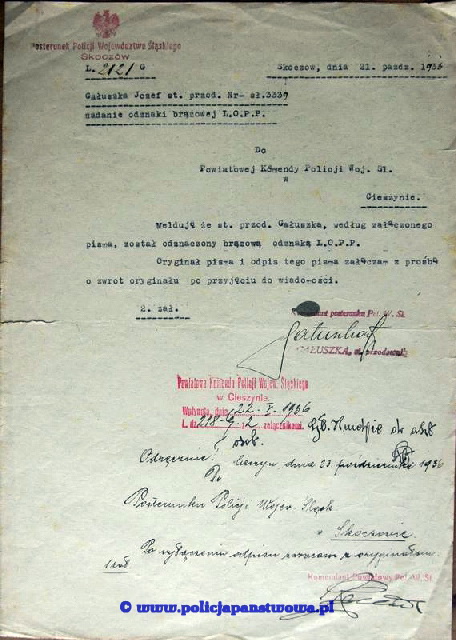 Posterunek Policji Województwa Śląskiego
Skoczów
L. 2121 G
Skoczów, dnia 21 paźdz. 1936
Gałuszka Józef st. przod. Nr. sł. 3339
nadanie odznaki brązowej L.O.P.P.
Do
Powiatowej Komendy Policji Woj. Śl.
w
Cieszynie.
Melduję że st. przod. Gałuszka, według załączonego
pisma, został odznaczony brązową odznaką L.O.P.P.
Oryginał pisma i odpis tego pisma załączam z prośbą
o zwrot oryginału po przyjęciu do wiadomości.
2. zał.
Komendant posterunku Pol. W. Śl.
GAŁUSZKA, st. przodownik
Powiatowa Komenda Policji Wojew. Śląskiego
w Cieszynie
Wpłynęło, dnia 22 - X - 1936
L. dz. załącznikami.
Odręcznie!
Cieszyn dnia 23 października 1936
Do
Posterunku Policji Wojew. Śląsk.
w Skoczowie
Po wyłączeniu odpisu zwracam z oryginałem
Komendant Powiatowy Pol. W. Śl.
© www.policjapanstwowa.pl